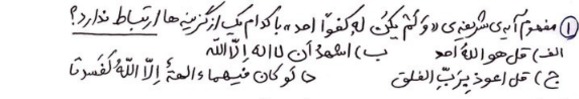 ① مفهوم آیه‌ی شریفه‌ی «وَلَمْ یکُن لَهُ کفُواً احد» با کدام یک از گزینه‌ها ارتباط ندارد؟
الف) قل هو اللهُ احد ب) اشهدُ أن لا اله إلّا الله
ج) قل اعوذ بِرَبِّ الفلق د) لَو کان فیهِما ءالِهةٌ إلّا اللّهُ لَفَسدتا